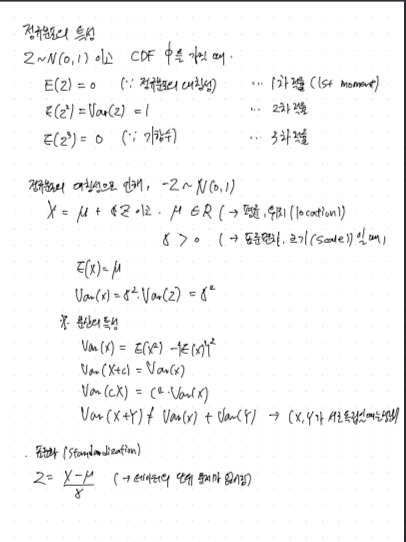 정규분포의 특성
Z~N(0,1) 이고 CDF Φ를 가질 때.
E(Z) = 0 (∵ 정규분포의 대칭성) ... 1차 적률 (1st moment)
E(Z²) = Var(Z) = 1 ... 2차 적률
E(Z³) = 0 (∵ 기함수) ... 3차 적률
정규분포의 대칭성으로 인해, -Z ~ N(0,1)
X = μ + σZ 이고. μ ∈ R (→ 평균, 위치 (location))
σ > 0 (→ 표준편차, 크기 (scale)) 일 때,
E(X) = μ
Var(X) = σ²·Var(Z) = σ²
※ 분산의 특성
Var(X) = E(X²) - {E(X)}²
Var(X+c) = Var(X)
Var(cX) = c²·Var(X)
Var(X+Y) ≠ Var(X) + Var(Y) → (X, Y가 서로 독립일 때는 성립)
. 표준화 (standardization)
Z = X-μ / σ (→ 데이터의 단위 문제가 없어짐)